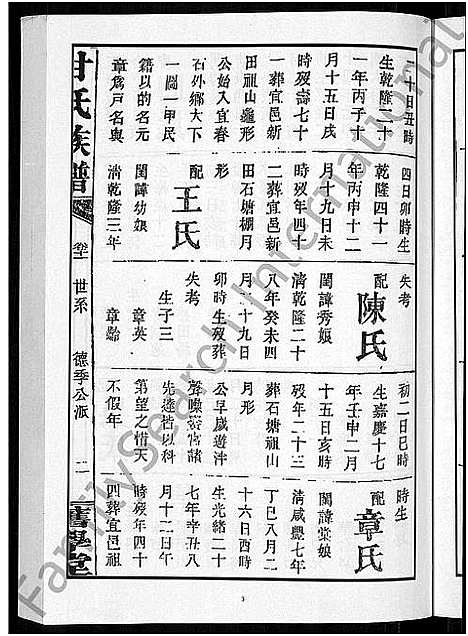 二十日丑時
生乾隆二十
一年丙子十
月十五日戌
時歿壽七十
一葬宜邑新
田祖山龜形
公始入宜春
石外鄉大下
一圖一甲民
籍以的名元
章爲戶名與
四日卯時生
乾隆四十一
年丙申十二
月十九日未
時歿年四十
二葬宜邑新
田石塘棚月
形
配王氏
閨諱幼娘
清乾隆三年
失考
配陳氏
閨諱秀娘
清乾隆二十
八年癸未四
月二十九日
卯時生歿葬
失考
生子三
章英
章齡
初二日巳時
生嘉慶十七
年壬申二月
十五日亥時
歿年二十三
葬石塘祖山
月形
公早歲遊泮
聲噪簧宮諸
先達皆以科
第望之惜天
不假年
時生
配章氏
閨諱棠娘
清咸豐七年
丁巳八月二
十六日酉時
生光緒二十
七年辛丑八
月十二日午
時歿年四十
四葬宜邑祖
甘氏族譜
世系
德季公派
二
舊學堂
FamilySearch International